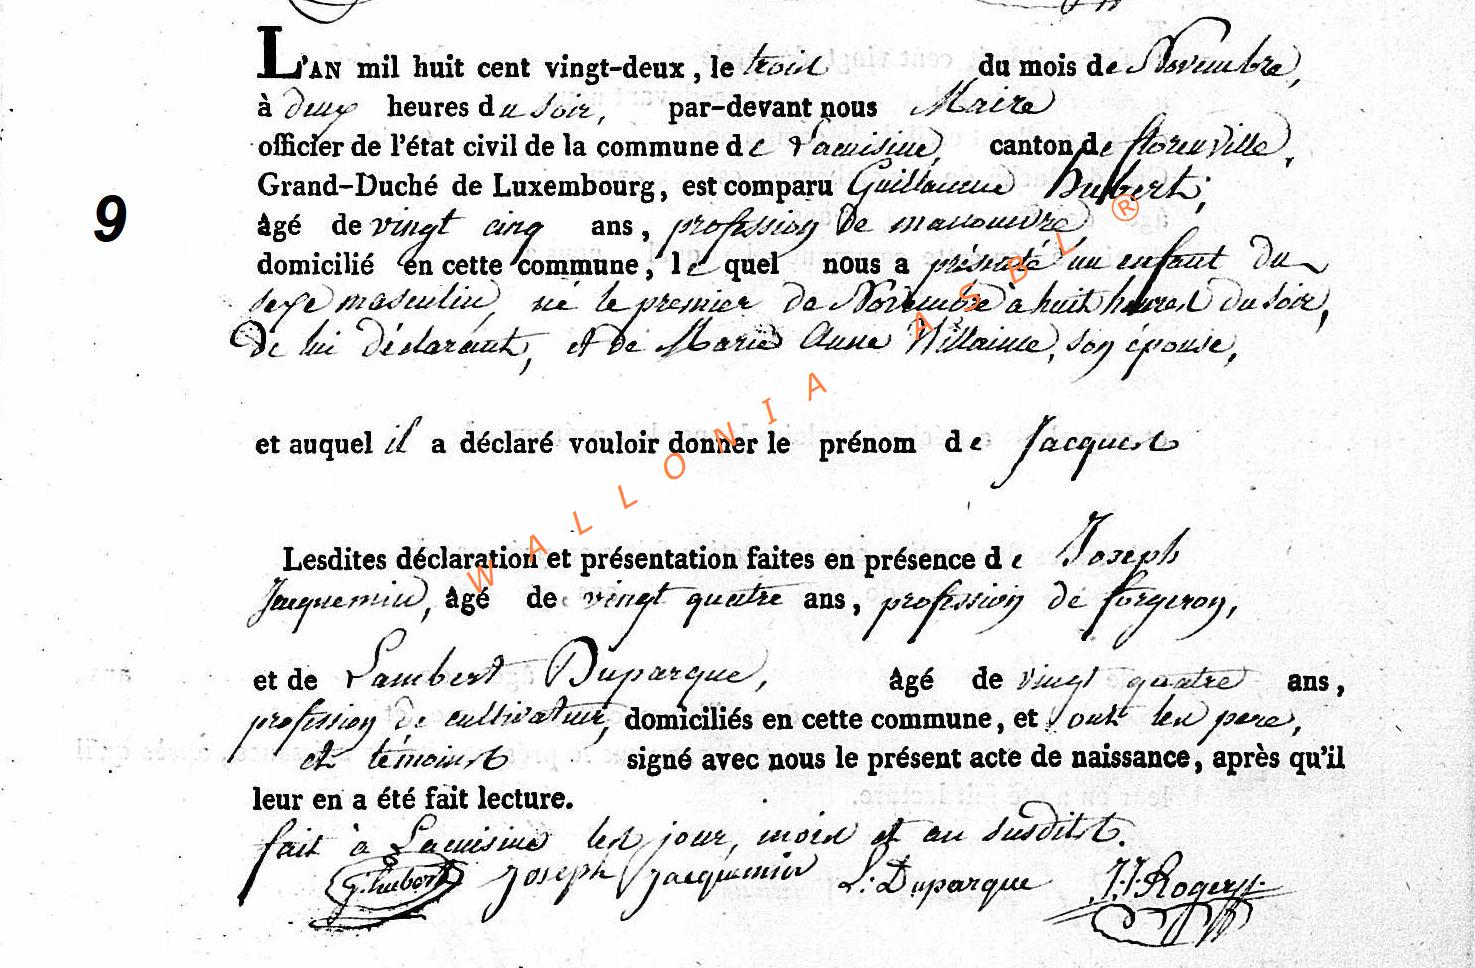 L'AN mil huit cent vingt-deux, le trois du mois de Novembre,
à deux heures du soir, par-devant nous Maire
officier de l'état civil de la commune de Lacuisine, canton de florenville,
Grand-Duché de Luxembourg, est comparu Guillaume Hubert;
âgé de vingt cinq ans, profession de manouvre
domicilié en cette commune, le quel nous a présenté un enfant du
9
sexe masculin, né le premier de Novembre à huit heures du soir,
de lui déclarant, et de Marie Anne Willaime, son épouse,
et auquel il a déclaré vouloir donner le prénom de Jacques
Lesdites déclaration et présentation faites en présence de Joseph
Jacquemin, âgé de vingt quatre ans, profession de forgeron,
et de Lambert Duparque, âgé de vingt quatre ans,
profession de cultivateur, domiciliés en cette commune, et ont les pere,
et témoins signé avec nous le présent acte de naissance, après qu'il
leur en a été fait lecture.
fait à Lacuisine les jour, mois et an susdits.
G. hubert Joseph Jacquemin L: Duparque J.J. Rogery
WALLONIA ASBL ®